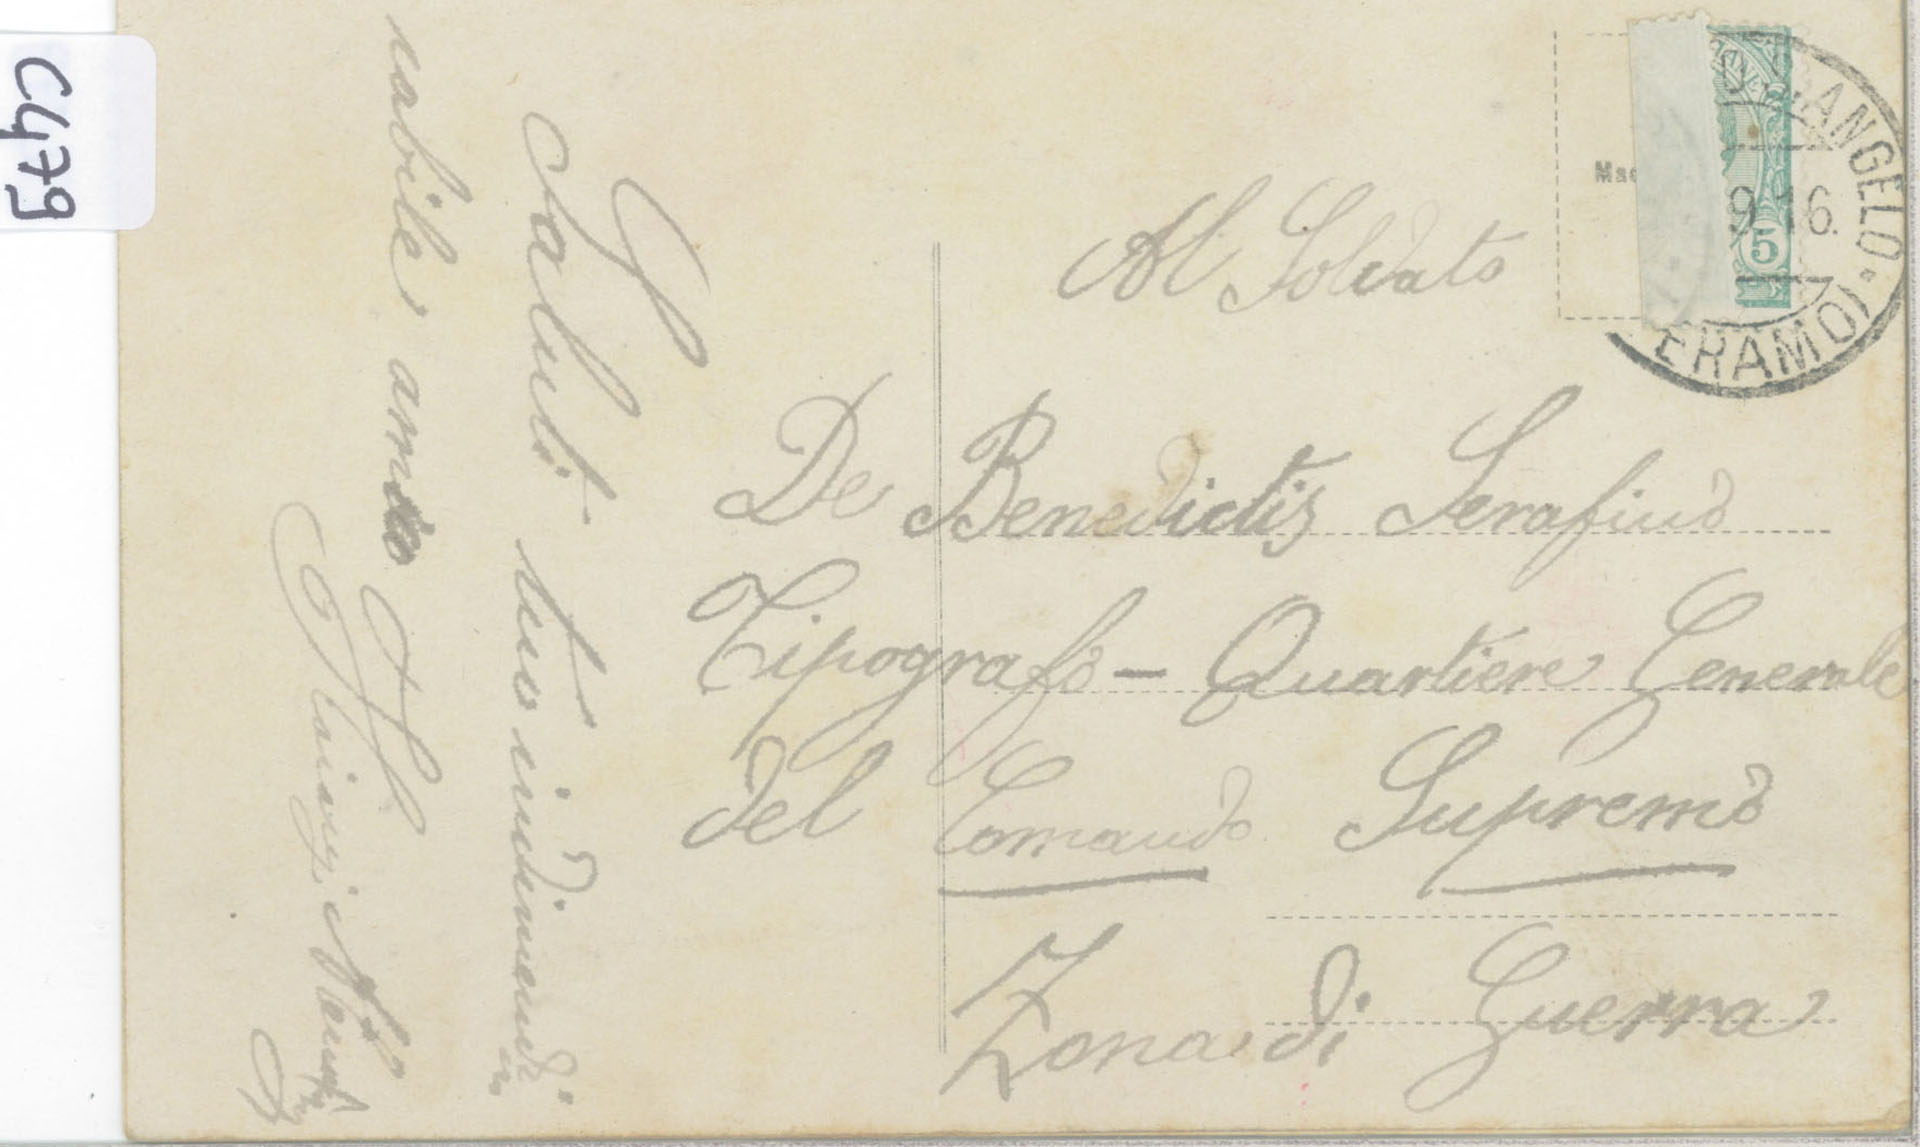 C479
Mad
ANGELO
9.16.
5
ERAMO)
Al Soldato
De Benedictis Serafino
Tipografo - Quartiere Generale
del Comando Supremo
Zona di Guerra
Saluti tuo indimenti
cabile amico
Luigi